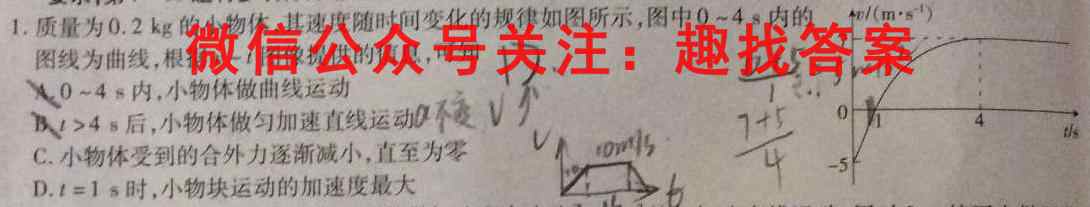 1. 质量为0.2 kg的小物体,其速度随时间变化的规律如图所示,图中0~4 s内的
图线为曲线,根
微信公众号关注：趣找答案
A. 0~4 s内,小物体做曲线运动
B. t>4 s后,小物体做匀加速直线运动
C. 小物体受到的合外力逐渐减小,直至为零
D. t=1 s时,小物块运动的加速度最大
v/(m·s⁻¹)
0 1 4 t/s
-5
7+5
4
10m/s
v
t